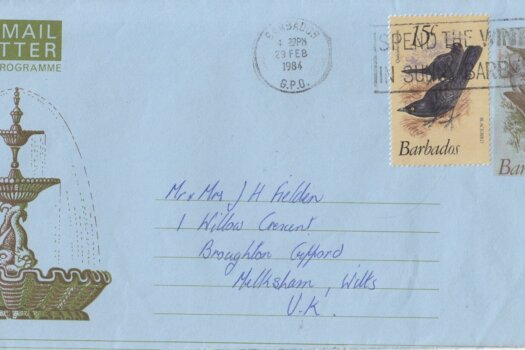 MAIL
TTER
PROGRAMME
BARBADOS
29 FEB
1984
G.P.O.
SPEND THE WIN
IN SUNNY BARB
15¢
BLACKBIRD
Barbados
Mr & Mrs J H Fielden
1 Willow Crescent
Broughton Gifford
Melksham, Wilts
U.K.